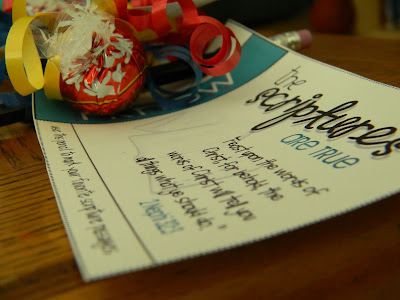 the
scriptures
are true
"Feast upon the words of
Christ; for behold, the
words of Christ will tell you
all things what ye should do."
2 Nephi 32:3
use this pencil to mark your favorite scripture passages